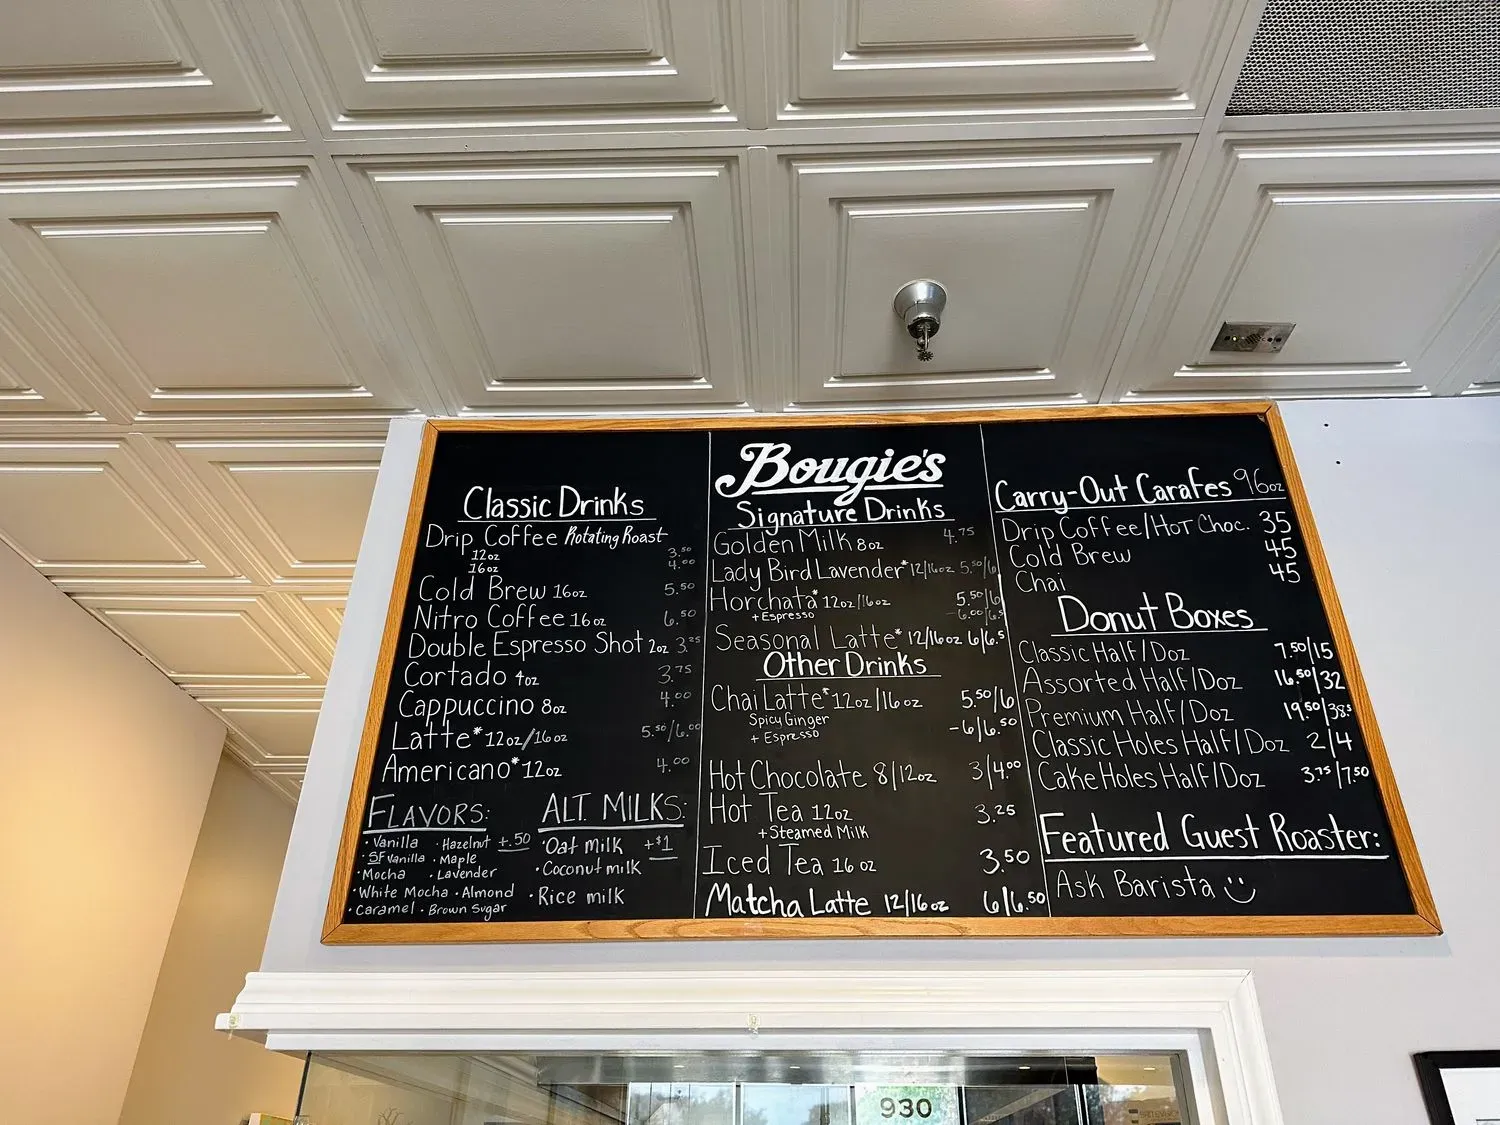 Classic Drinks
Drip Coffee Rotating Roast
12oz 3.50
16oz 4.00
Cold Brew 16oz 5.50
Nitro Coffee 16oz 6.50
Double Espresso Shot 2oz 3.25
Cortado 4oz 3.75
Cappuccino 8oz 4.00
Latte* 12oz/16oz 5.50/6.00
Americano* 12oz 4.00
FLAVORS:
· Vanilla · Hazelnut +.50
· SF Vanilla · Maple
· Mocha · Lavender
· White Mocha · Almond
· Caramel · Brown Sugar
ALT. MILKS:
· Oat milk +$1
· Coconut milk
· Rice milk
Bougie's
Signature Drinks
Golden Milk 8oz 4.75
Lady Bird Lavender* 12/16oz 5.50/6
Horchata* 12oz/16oz 5.50/6
+ Espresso -6.00/6.5
Seasonal Latte* 12/16oz 6/6.5
Other Drinks
Chai Latte* 12oz/16oz 5.50/6
Spicy Ginger
+ Espresso -6/6.50
Hot Chocolate 8/12oz 3/4.00
Hot Tea 12oz 3.25
+Steamed Milk
Iced Tea 16oz 3.50
Matcha Latte 12/16oz 6/6.50
Carry-Out Carafes 96oz
Drip Coffee/Hot Choc. 35
Cold Brew 45
Chai 45
Donut Boxes
Classic Half/Doz 7.50/15
Assorted Half/Doz 16.50/32
Premium Half/Doz 19.50/38.5
Classic Holes Half/Doz 2/4
Cake Holes Half/Doz 3.75/7.50
Featured Guest Roaster:
Ask Barista
930